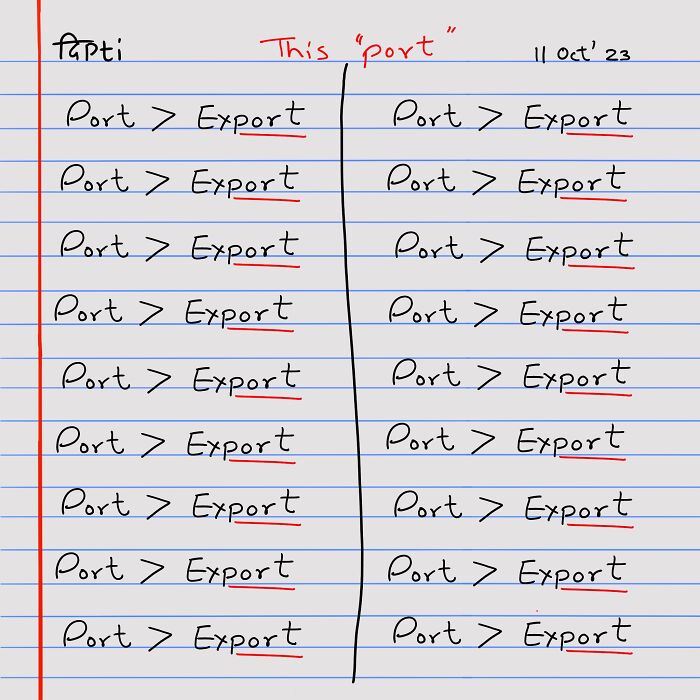 दिप्ती This "port" 11 Oct' 23
Port > Export Port > Export
Port > Export Port > Export
Port > Export Port > Export
Port > Export Port > Export
Port > Export Port > Export
Port > Export Port > Export
Port > Export Port > Export
Port > Export Port > Export
Port > Export Port > Export